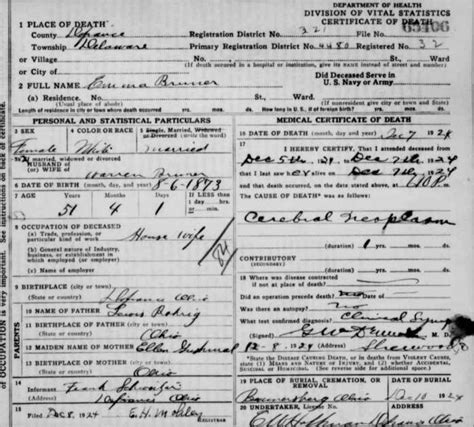 DEPARTMENT OF HEALTH
DIVISION OF VITAL STATISTICS
CERTIFICATE OF DEATH
1 PLACE OF DEATH
County Defiance
Registration District No. 321
File No. 65466
Township Delaware
Primary Registration District No. 4480 Registered No. 32
or Village
No. St., Ward
(If death occurred in a hospital or institution, give its NAME instead of street and number)
or City of
Did Deceased Serve in
U. S. Navy or Army
2 FULL NAME Emma Bruner
(a) Residence. No. St., Ward
(Usual place of abode)
(If nonresident give city or town and State)
Length of residence in city or town where death occurred yrs. mos. ds.
How long in U. S., if of foreign birth? yrs. mos. ds.
PERSONAL AND STATISTICAL PARTICULARS
3 SEX
Female
4 COLOR OR RACE
5 Single, Married, Widowed or Divorced (write the word)
married
If married, widowed or divorced
HUSBAND of
(or) WIFE of
Warren Bruner
6 DATE OF BIRTH (month, day, and year) 8-6-1873
7 AGE Years Months Days
51 4 1
If LESS than
1 day hrs.
or min.
8 OCCUPATION OF DECEASED
(a) Trade, profession, or
particular kind of work
House wife
(b) General nature of Industry,
business, or establishment in
which employed (or employer)
(c) Name of employer
9 BIRTHPLACE (city or town)
(State or country)
Defiance Ohio
10 NAME OF FATHER
11 BIRTHPLACE OF FATHER (city or town)
(State or country)
Ohio
12 MAIDEN NAME OF MOTHER
Ellen
13 BIRTHPLACE OF MOTHER (city or town)
(State or country)
Ohio
14
Informant Frank
(Address) Defiance Ohio
15
Filed Dec 8, 1924 E.H.
MEDICAL CERTIFICATE OF DEATH
16 DATE OF DEATH (month, day, and year) Dec 7 1924
17
I HEREBY CERTIFY, That I attended deceased from
Dec 5th, 1924, to Dec 7th, 1924
that I last saw her alive on Dec 7th, 1924
and that death occurred, on the date stated above, at
The CAUSE OF DEATH* was as follows:
Cerebral Neoplasm
(duration) 1 yrs. mos. ds.
CONTRIBUTORY
(SECONDARY)
(duration) yrs. mos. ds.
18 Where was disease contracted
if not at place of death?
Did an operation precede death? no Date of
Was there an autopsy? no
What test confirmed diagnosis? Clinical
(Signed) M. D.
12-8, 1924 (Address) Sherwood O
*State the Disease Causing Death, or in deaths from Violent Causes, state
(1) Means and Nature of Injury, and (2) whether Accidental, Suicidal, or
Homicidal.
19 PLACE OF BURIAL, CREMATION, OR REMOVAL
DATE OF BURIAL
Ohio
Dec 10 1924
20 UNDERTAKER, License No.
ADDRESS
Defiance Ohio